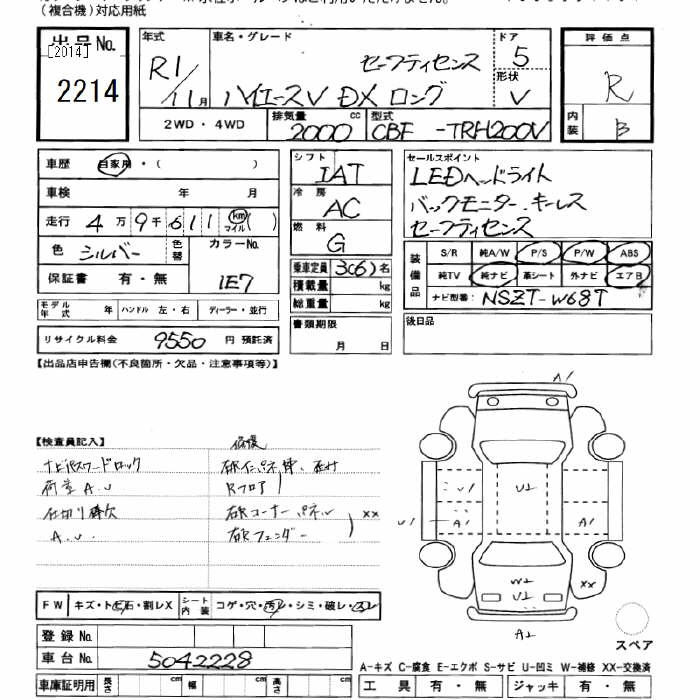 (複合機)対応用紙
出品No.
[2014]
2214
年式
R1/11月
車名・グレード
セーフティセンス
ハイエースV DX ロング
ドア
5
形状
V
2WD・4WD
排気量
2000 cc
型式
CBF -TRH200V
評価点
R
内装
B
車歴 自家用・( )
車検 年 月
走行 4万9千611 km マイル( )
色 シルバー
色替
カラーNo.
1E7
保証書 有・無
モデル年式 年 ハンドル 左・右 ディーラー・並行
リサイクル料金 9550 円 預託済
シフト
IAT
冷房
AC
燃料
G
乗車定員 3(6)名
積載量 kg
総重量 kg
書類期限
月 日
セールスポイント
LEDヘッドライト
バックモニター、キーレス
セーフティセンス
装備品
S/R 純A/W P/S P/W ABS
純TV 純ナビ 革シート 外ナビ エアB
ナビ型番: NSZT-W68T
後日品
【出品店申告欄(不良箇所・欠品・注意事項等)】
【検査員記入】
修復
ナビパスワードロック
荷室 A.U
A.U
Rフロア
右Rコーナーパネル
右Rフェンダー
XX
A1
U1
U1
A1
U2
A1
A1
W2
U2
XX
A2
スペア
FW キズ・トビ石・割レX
シート内装 コゲ・穴・汚レ・シミ・破レ・スレ
登録No.
車台No. 5042228
車庫証明用 長さ cm 幅 cm 高さ cm
A-キズ C-腐食 E-エクボ S-サビ U-凹ミ W-補修 XX-交換済
工具 有・無 ジャッキ 有・無